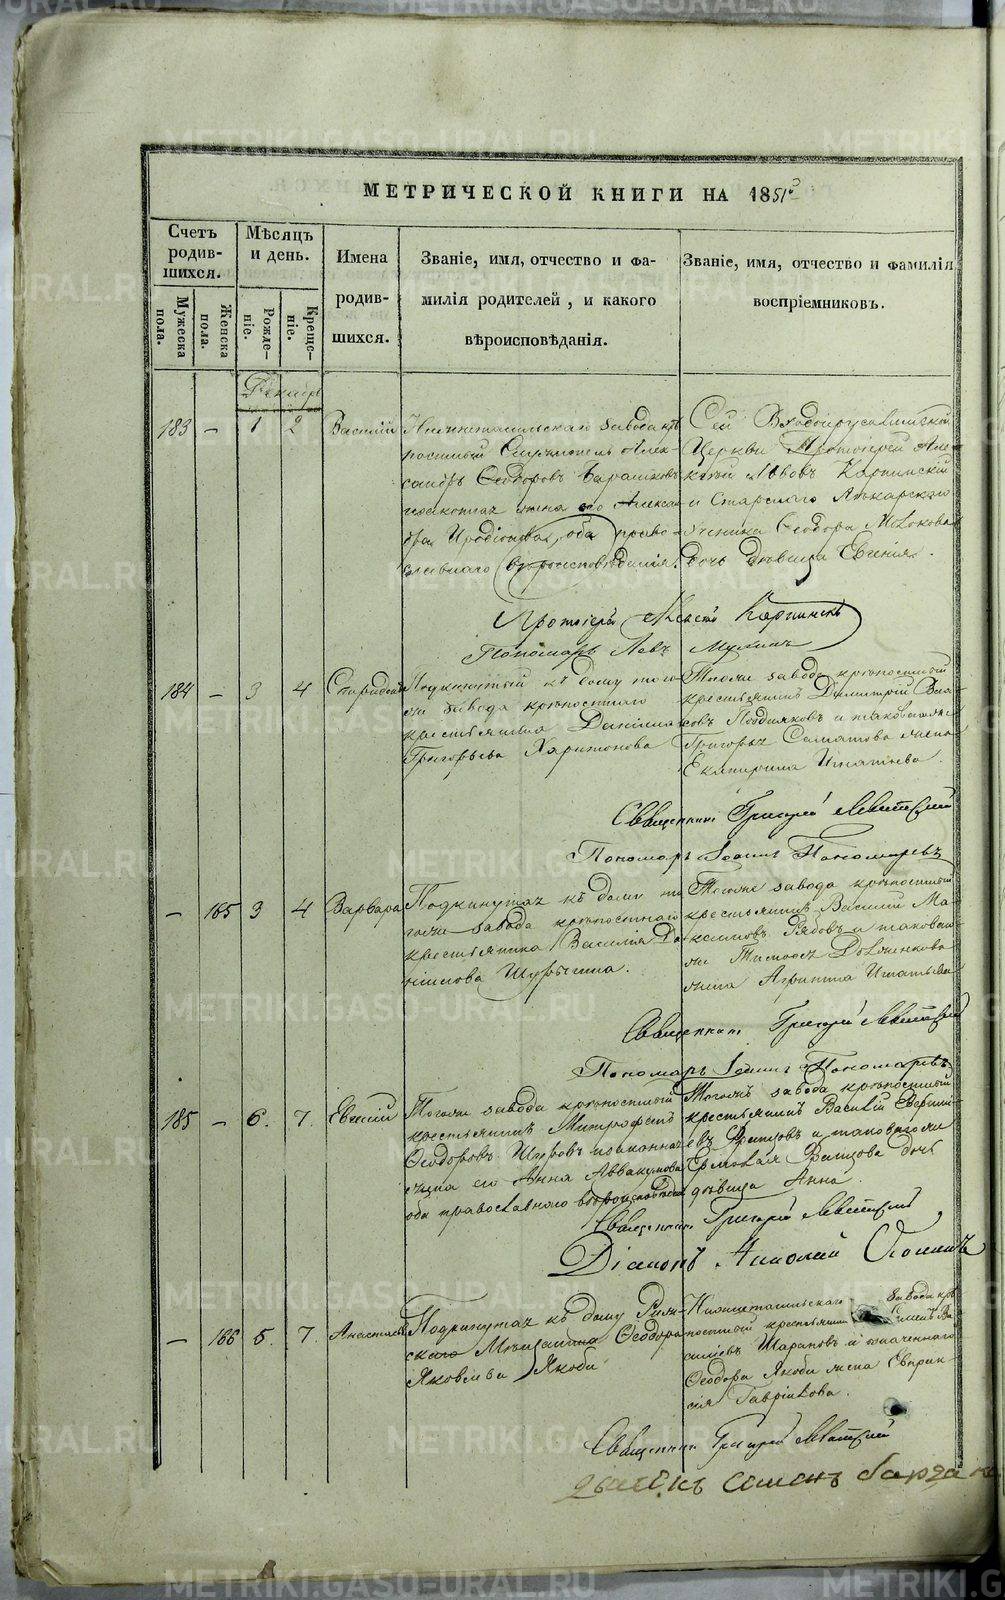 МЕТРИЧЕСКОЙ КНИГИ НА 1851й
Счетъ родив-шихся.
Мужеска пола.
Женска пола.
Мѣсяцъ и день.
Рожде-ніе.
Креще-ніе.
Имена
родив-
шихся.
Званіе, имя, отчество и фа-
милія родителей, и какого
вѣроисповѣданія.
Званіе, имя, отчество и фамилія
воспріемниковъ.
Декабрь
183 — 1 2 Василій
Нижнетагильскаго завода крѣ-
постный Служитель Алек-
сандръ Ѳеодоровъ Барашковъ
законная жена его Алексан
дра Иродіонова, оба право-
славнаго вѣроисповѣданія.
Сей Входоіерусалимской
Церкви Протоіерей Але-
ксѣй Львовъ Карпинскій
и Старшаго Лѣкарскаго
ученика Ѳеодора Молокова
дочь дѣвица Евгенія.
Протоіерей Алексѣй Карпинскій
Пономарь Левъ
184 — 3 4 Спиридонъ
Подкинутый къ дому того
же завода крѣпостнаго
крестьянина Даніила
Григорьева Харитонова
Тогоже завода крѣпостный
крестьянинъ Димитрій Вла-
совъ и таковагоже
Григорья жена
Екатерина Игнатьева.
Священникъ Григорій Левитскій
Пономарь Іоаннъ Пономаревъ
— 165 3 4 Варвара
Подкинутая къ дому то
гоже завода крѣпостнаго
крестьянина Василія Да-
нилова
Тогоже завода крѣпостный
крестьянинъ Василій Ма-
ксимовъ Рябовъ и таковаго
же Тимоѳея
жена Агрипина Игнатьева
Священникъ Григорій Левитскій
Пономарь Іоаннъ Пономаревъ
185 — 6. 7. Евгеній
Тогоже завода крѣпостный
крестьянинъ Митрофанъ
Ѳеодоровъ законная
жена его Анна Аввакумова
оба православнаго вѣроисповѣданія
Тогожъ завода крѣпостный
крестьянинъ Василій
и таковагоже
дочь
дѣвица Анна.
Священникъ Григорій Левитскій
Діаконъ Николай
— 166 5. 7. Анастасія
Подкинутая къ дому Рим-
скаго Мѣщанина Ѳеодора
Яковлева Якоби
Нижнетагильскаго завода крѣ-
постный крестьянинъ Ва-
сильевъ Шараповъ и означеннаго
Ѳеодора Якоби жена Евпрак-
сія Гаврилова.
Священникъ Григорій Левитскій
дьячекъ семенъ
METRIKI.GASO-URAL.RU